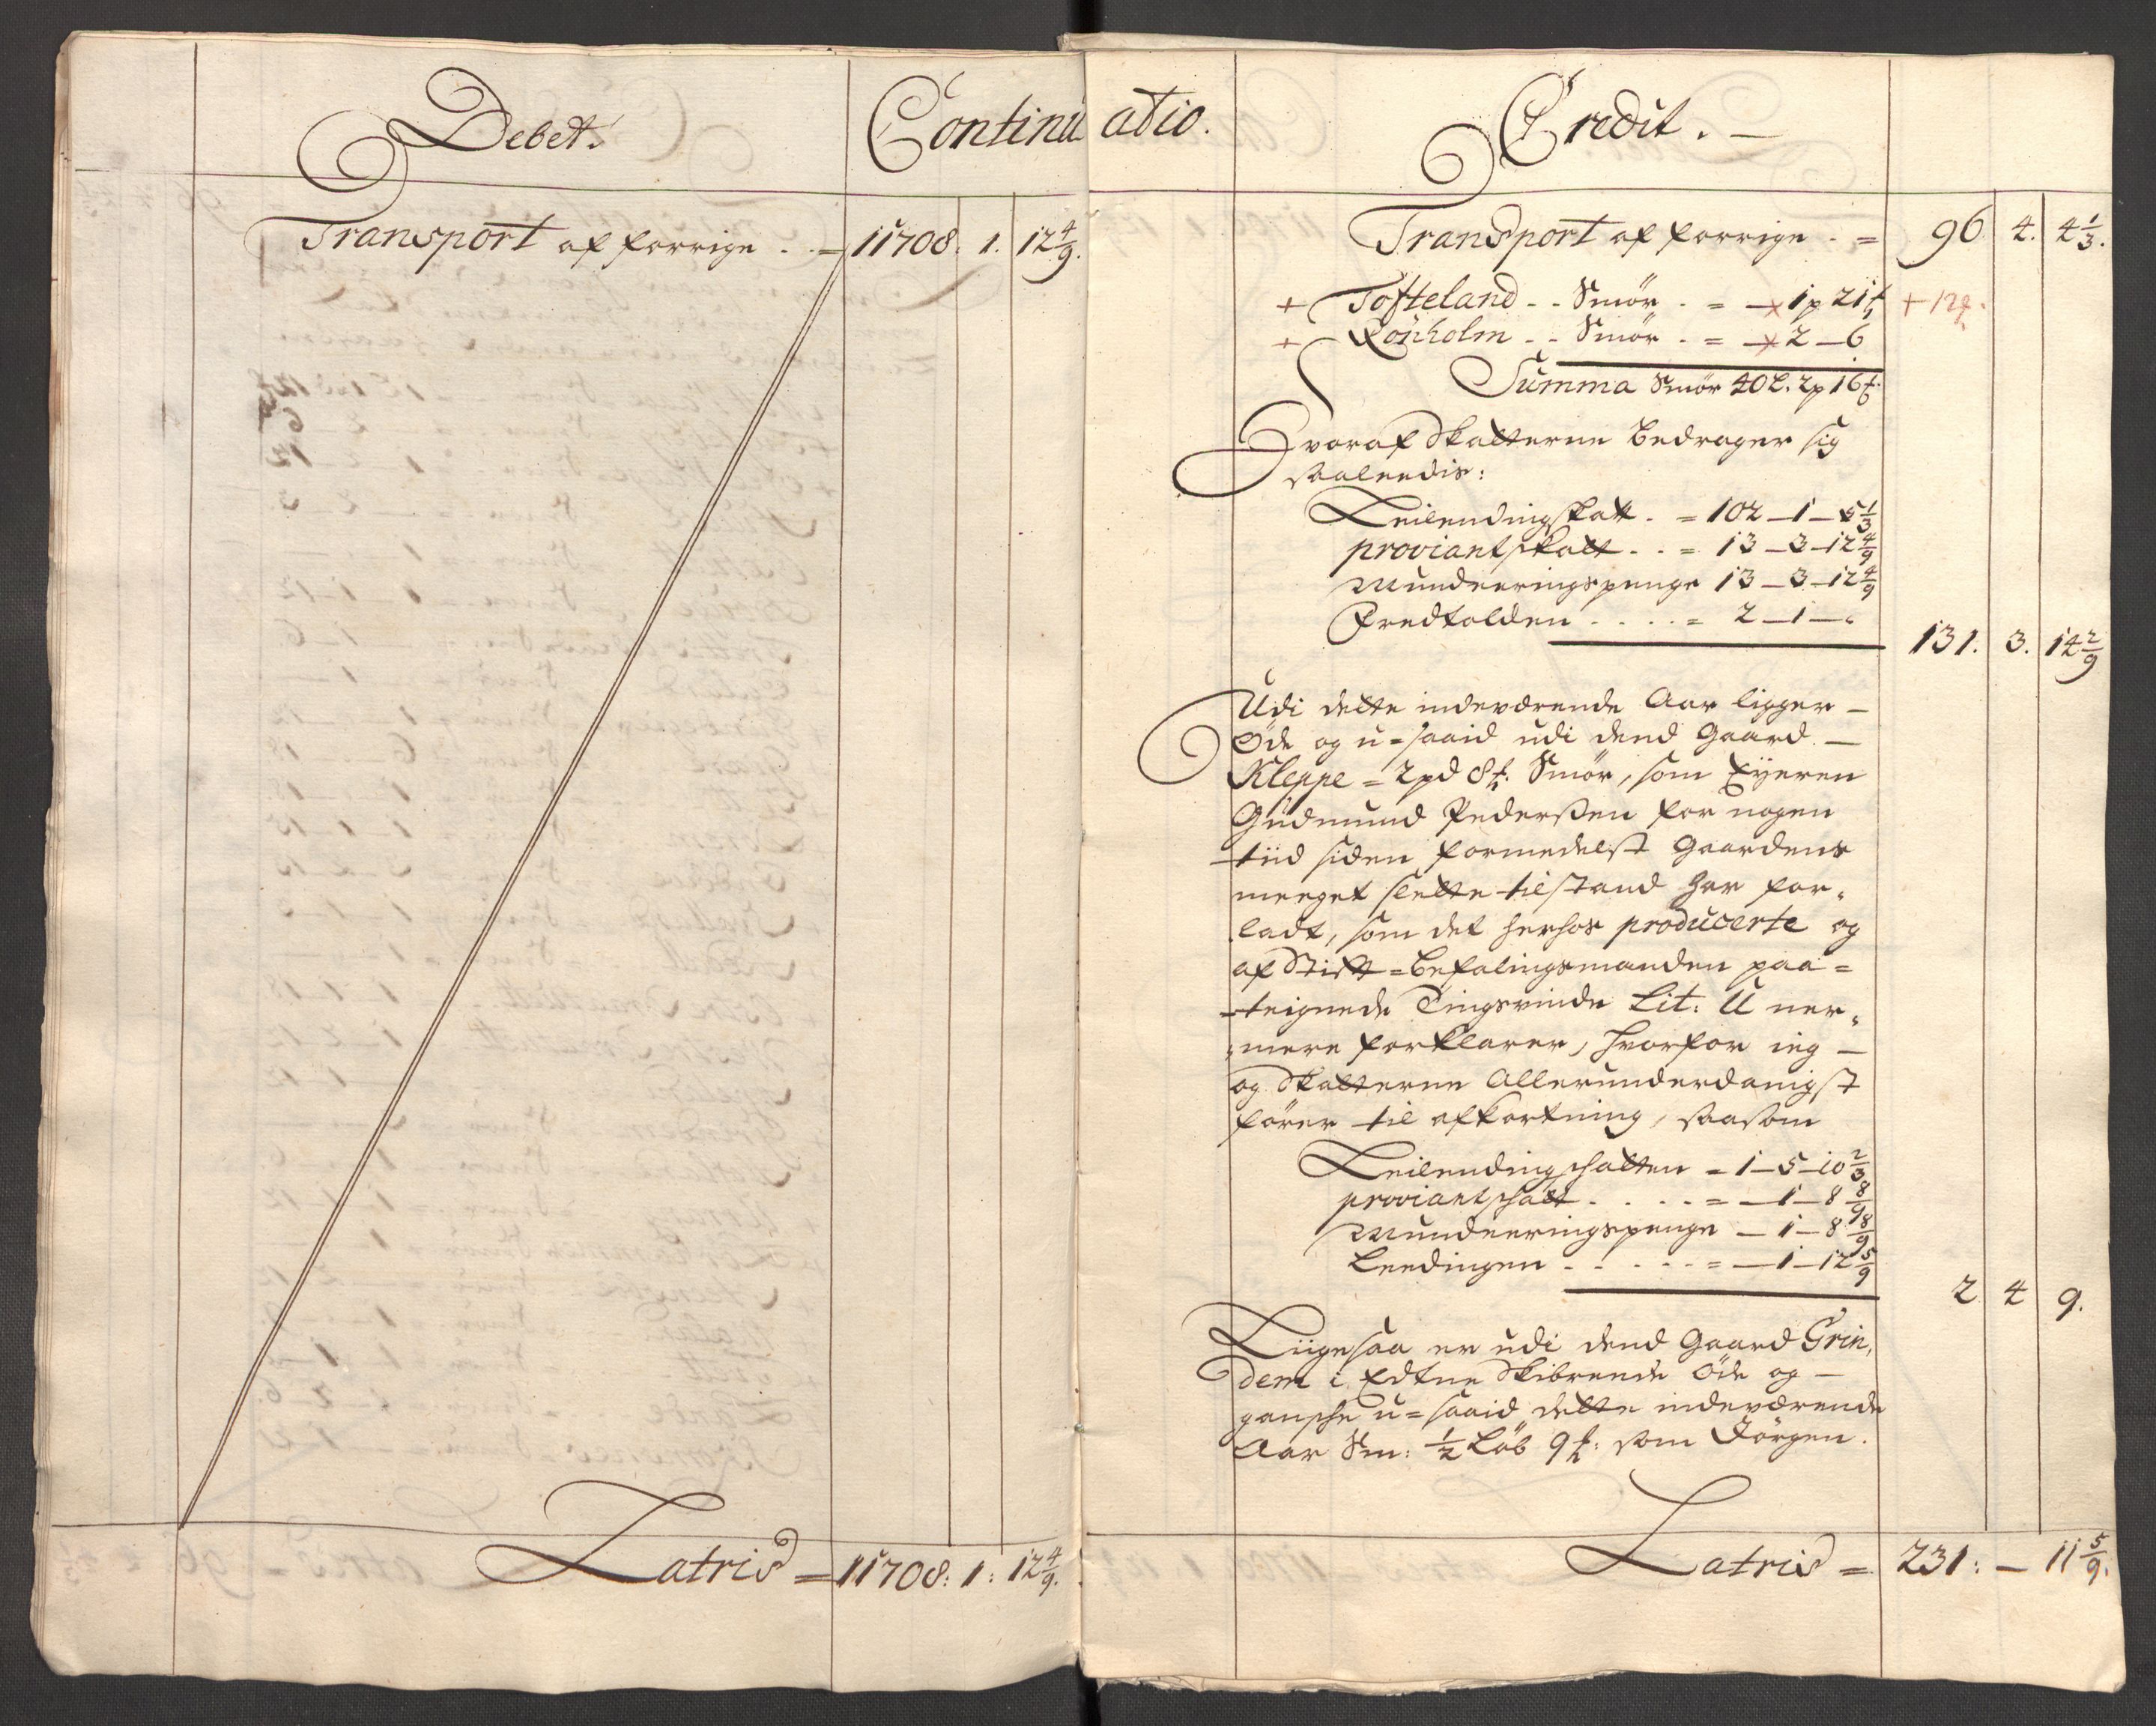 Debet.
Continuatio.
Transport af forrige . . = 11708. 1. 12 4/9.
Latris = 11708: 1: 12 4/9.
Credit.
Transport af forrige . = 96. 4. 4 1/3.
+ Tofteland - - Smør . = — 1 p 21 ℔ + 12 ℔.
+ Rönholm - - Smør . = — 2 — 6
Summa Smör 40 L. 2 p 16 ℔.
Hvoraf Skatterne bedrager sig
saaleedis:
Leilendingskatt . = 102 — 1 — 5 1/3
proviantskatt . . = 13 — 3 — 12 4/9
Mundeeringspenge 13 — 3 — 12 4/9
Fredtolden . . . . = 2 — 1 — "
131. 3. 14 2/9
Udi dette indeværende Aar ligger —
Öde og u=saaid udi dend Gaard —
Kleppe = 2 pd 8 ℔. Smör, som Eyeren
Gudmund Pederssen for nogen
tiid siden formedelst Gaardens
meeget slette tilstand har for,
ladt, som det herhos producerte og
af Stift=befalingsmanden paa=
teignede Tingsvinde Lit: U ner,
mere forklarer, hvorfor ieg —
og Skatterne Allerunderdanigst
förer til afkortning, saasom
Leilendingschatten = 1 — 5 — 10 2/3
proviantschatt . . . . = — 1 — 8 8/9
Mundeeringspenge — 1 — 8 8/9
Leedingen . . . . . = — 1 — 12 5/9
2 4 9.
Liigesaa er udi dend Gaard Grin,
dem i Edtne Skibrede Öde og —
gansche u=saaid dette indeværende
Aar Sm: 1/2 Löb 9 ℔: som Jörgen.
Latris = 231: — 11 5/9.